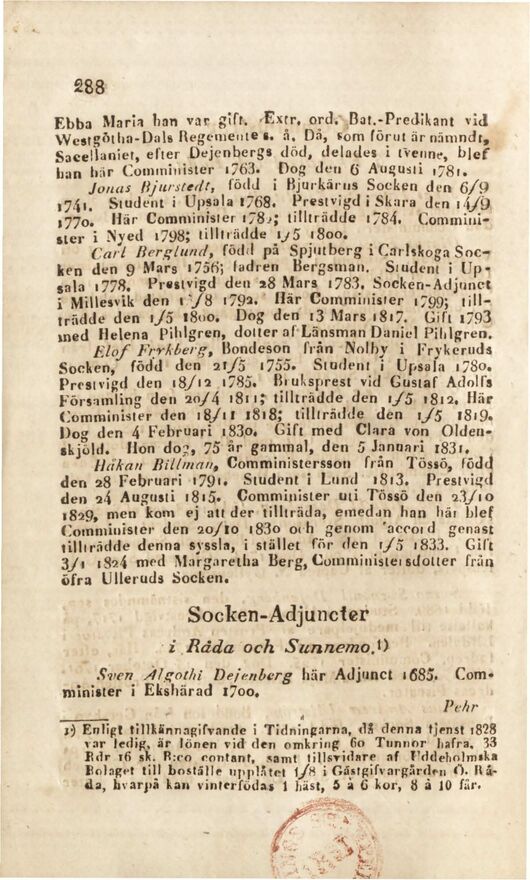 288
Ebba Maria han var gift. Extr. ord. Bat.-Predikant vid
Westgötha-Dals Regemente s. å. Då, som förut är nämndt,
Sacellaniet, efter Dejenbergs död, delades i tvenne, blef
han här Comminister 1763. Dog den 6 Augusti 1781.
Jonas Bjurstedt, född i Bjurkärns Socken den 6/9
1741. Student i Upsala 1768. Prestvigd i Skara den 14/9
1770. Här Comminister 1782; tillträdde 1784. Commini-
ster i Nyed 1798; tillträdde 1/5 1800.
Carl Berglund, född på Spjutberg i Carlskoga Soc-
ken den 9 Mars 1756; fadren Bergsman. Student i Up-
sala 1778. Prestvigd den 28 Mars 1783. Socken-Adjunct
i Millesvik den 1/8 1792. Här Comminister 1799; till-
trädde den 1/5 1800. Dog den 13 Mars 1817. Gift 1793
med Helena Pihlgren, dotter af Länsman Daniel Pihlgren.
Elof Frykberg, Bondeson från Nolby i Frykeruds
Socken, född den 21/5 1755. Student i Upsala 1780.
Prestvigd den 18/12 1785. Bruksprest vid Gustaf Adolfs
Församling den 20/4 1811; tillträdde den 1/5 1812. Här
Comminister den 18/11 1818; tillträdde den 1/5 1819.
Dog den 4 Februari 1830. Gift med Clara von Olden-
skjöld. Hon dog, 75 år gammal, den 5 Januari 1831.
Håkan Billman, Comministersson från Tössö, född
den 28 Februari 1791. Student i Lund 1813. Prestvigd
den 24 Augusti 1815. Comminister uti Tössö den 23/10
1829, men kom ej att der tillträda, emedan han här blef
Comminister den 20/10 1830 och genom accord genast
tillträdde denna syssla, i stället för den 1/5 1833. Gift
3/1 1824 med Margaretha Berg, Comministersdotter från
öfra Ulleruds Socken.
Socken-Adjuncter
i Råda och Sunnemo.1)
Sven Algothi Dejenberg här Adjunct 1685. Com-
minister i Ekshärad 1700.
Pehr
1) Enligt tillkännagifvande i Tidningarna, då denna tjenst 1828
var ledig, är lönen vid den omkring 60 Tunnor hafra, 33
Rdr 16 sk. B:co contant, samt tillsvidare af Uddeholmska
Bolaget till boställe upplåtet 1/8 i Gästgifvargården Ö. Rå-
da, hvarpå kan vinterfödas 1 häst, 5 à 6 kor, 8 à 10 får.